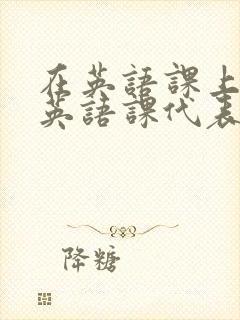 在英語課上
英語課代表
降糖